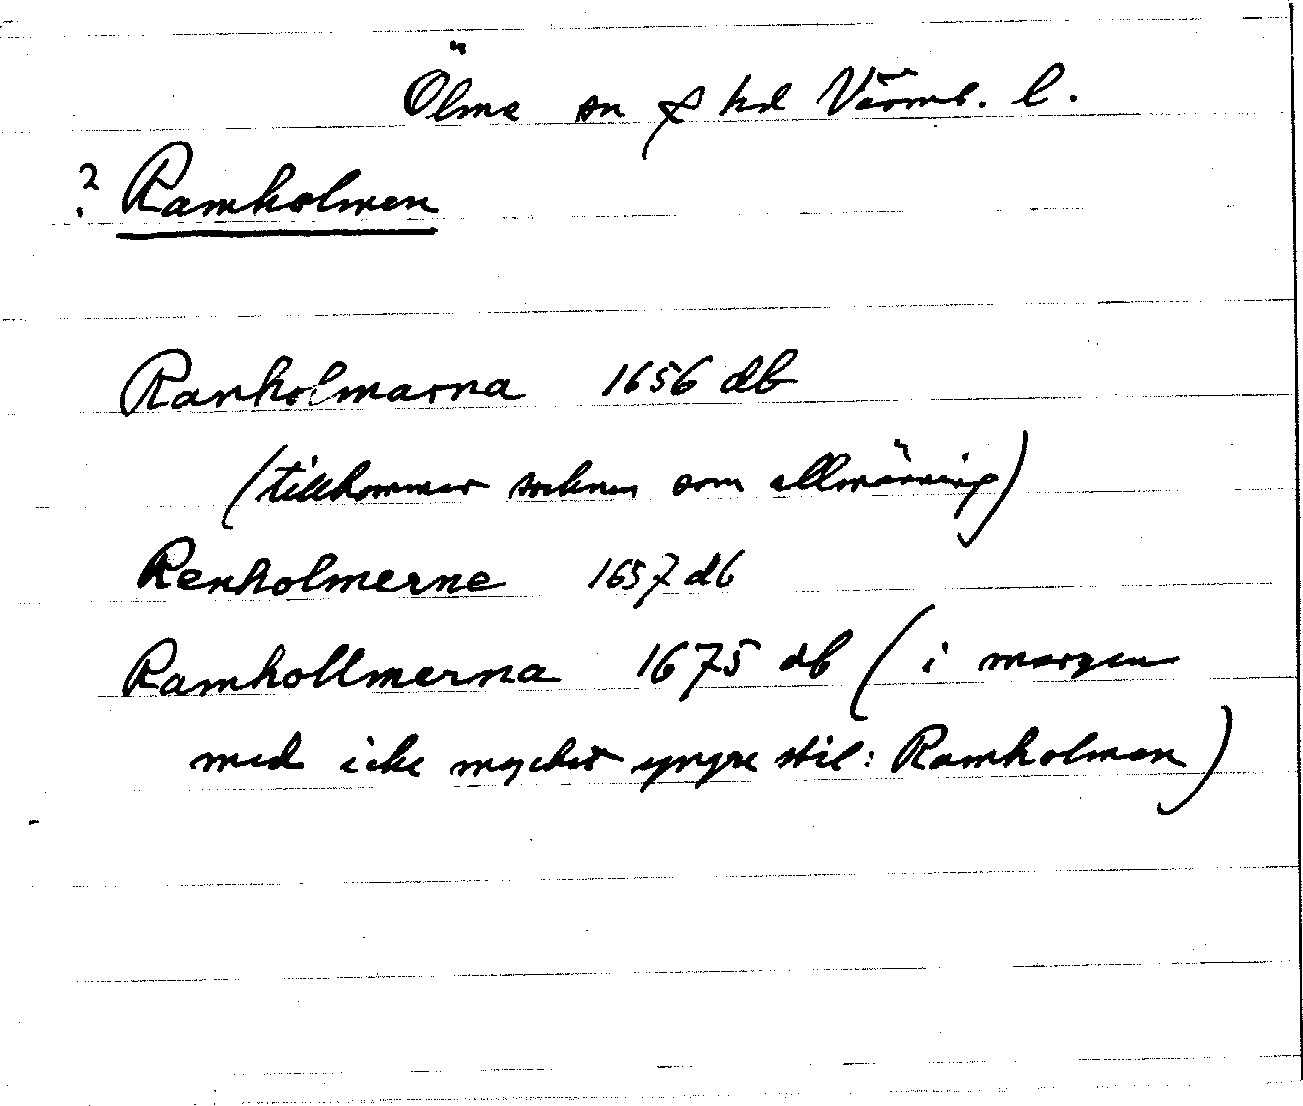 Ölme sn & hd Värml. l.
? Ramholmen
Ranholmarna 1656 db
(tillkommer socknen som allmänning)
Renholmerne 1657 db
Ramhollmerna 1675 db (i margen
med icke mycket yngre stil: Ramholmen)